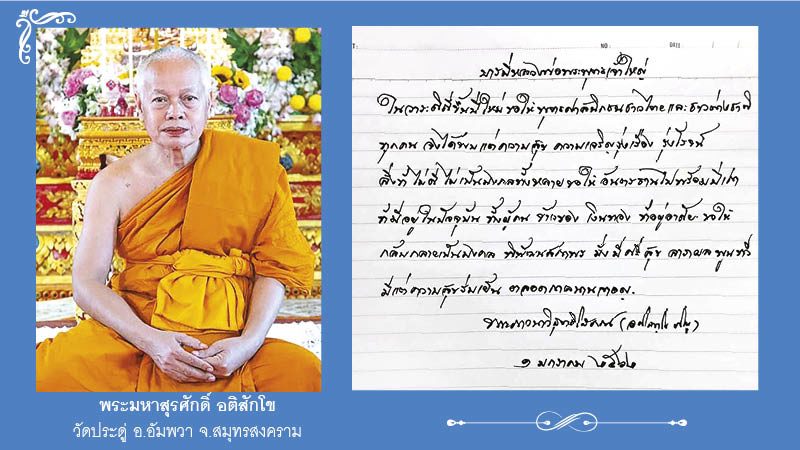 NO. DATE
ในวาระดิถีขึ้นปีใหม่ ขอให้พุทธศาสนิกชนชาวไทยและชาวต่างชาติ
ทุกคน จงได้พบแต่ความสุข ความเจริญรุ่งเรือง รุ่งโรจน์
สิ่งที่ไม่ดี ไม่เป็นมงคลทั้งหลาย ขอให้อันตรธานไปพร้อมปีเก่า
ที่มีอยู่ในปัจจุบัน ทั้งผู้คน ข้าวของ เงินทอง ที่อยู่อาศัย ขอให้
กลับกลายเป็นมงคล พิพัฒน์สถาพร มั่งมีศรีสุข ลาภผลพูนทวี
มีแต่ความสุขร่มเย็น ตลอดกาลนานเทอญ.
๑ มกราคม
พระมหาสุรศักดิ์ อติสักโข
วัดประดู่ อ.อัมพวา จ.สมุทรสงคราม